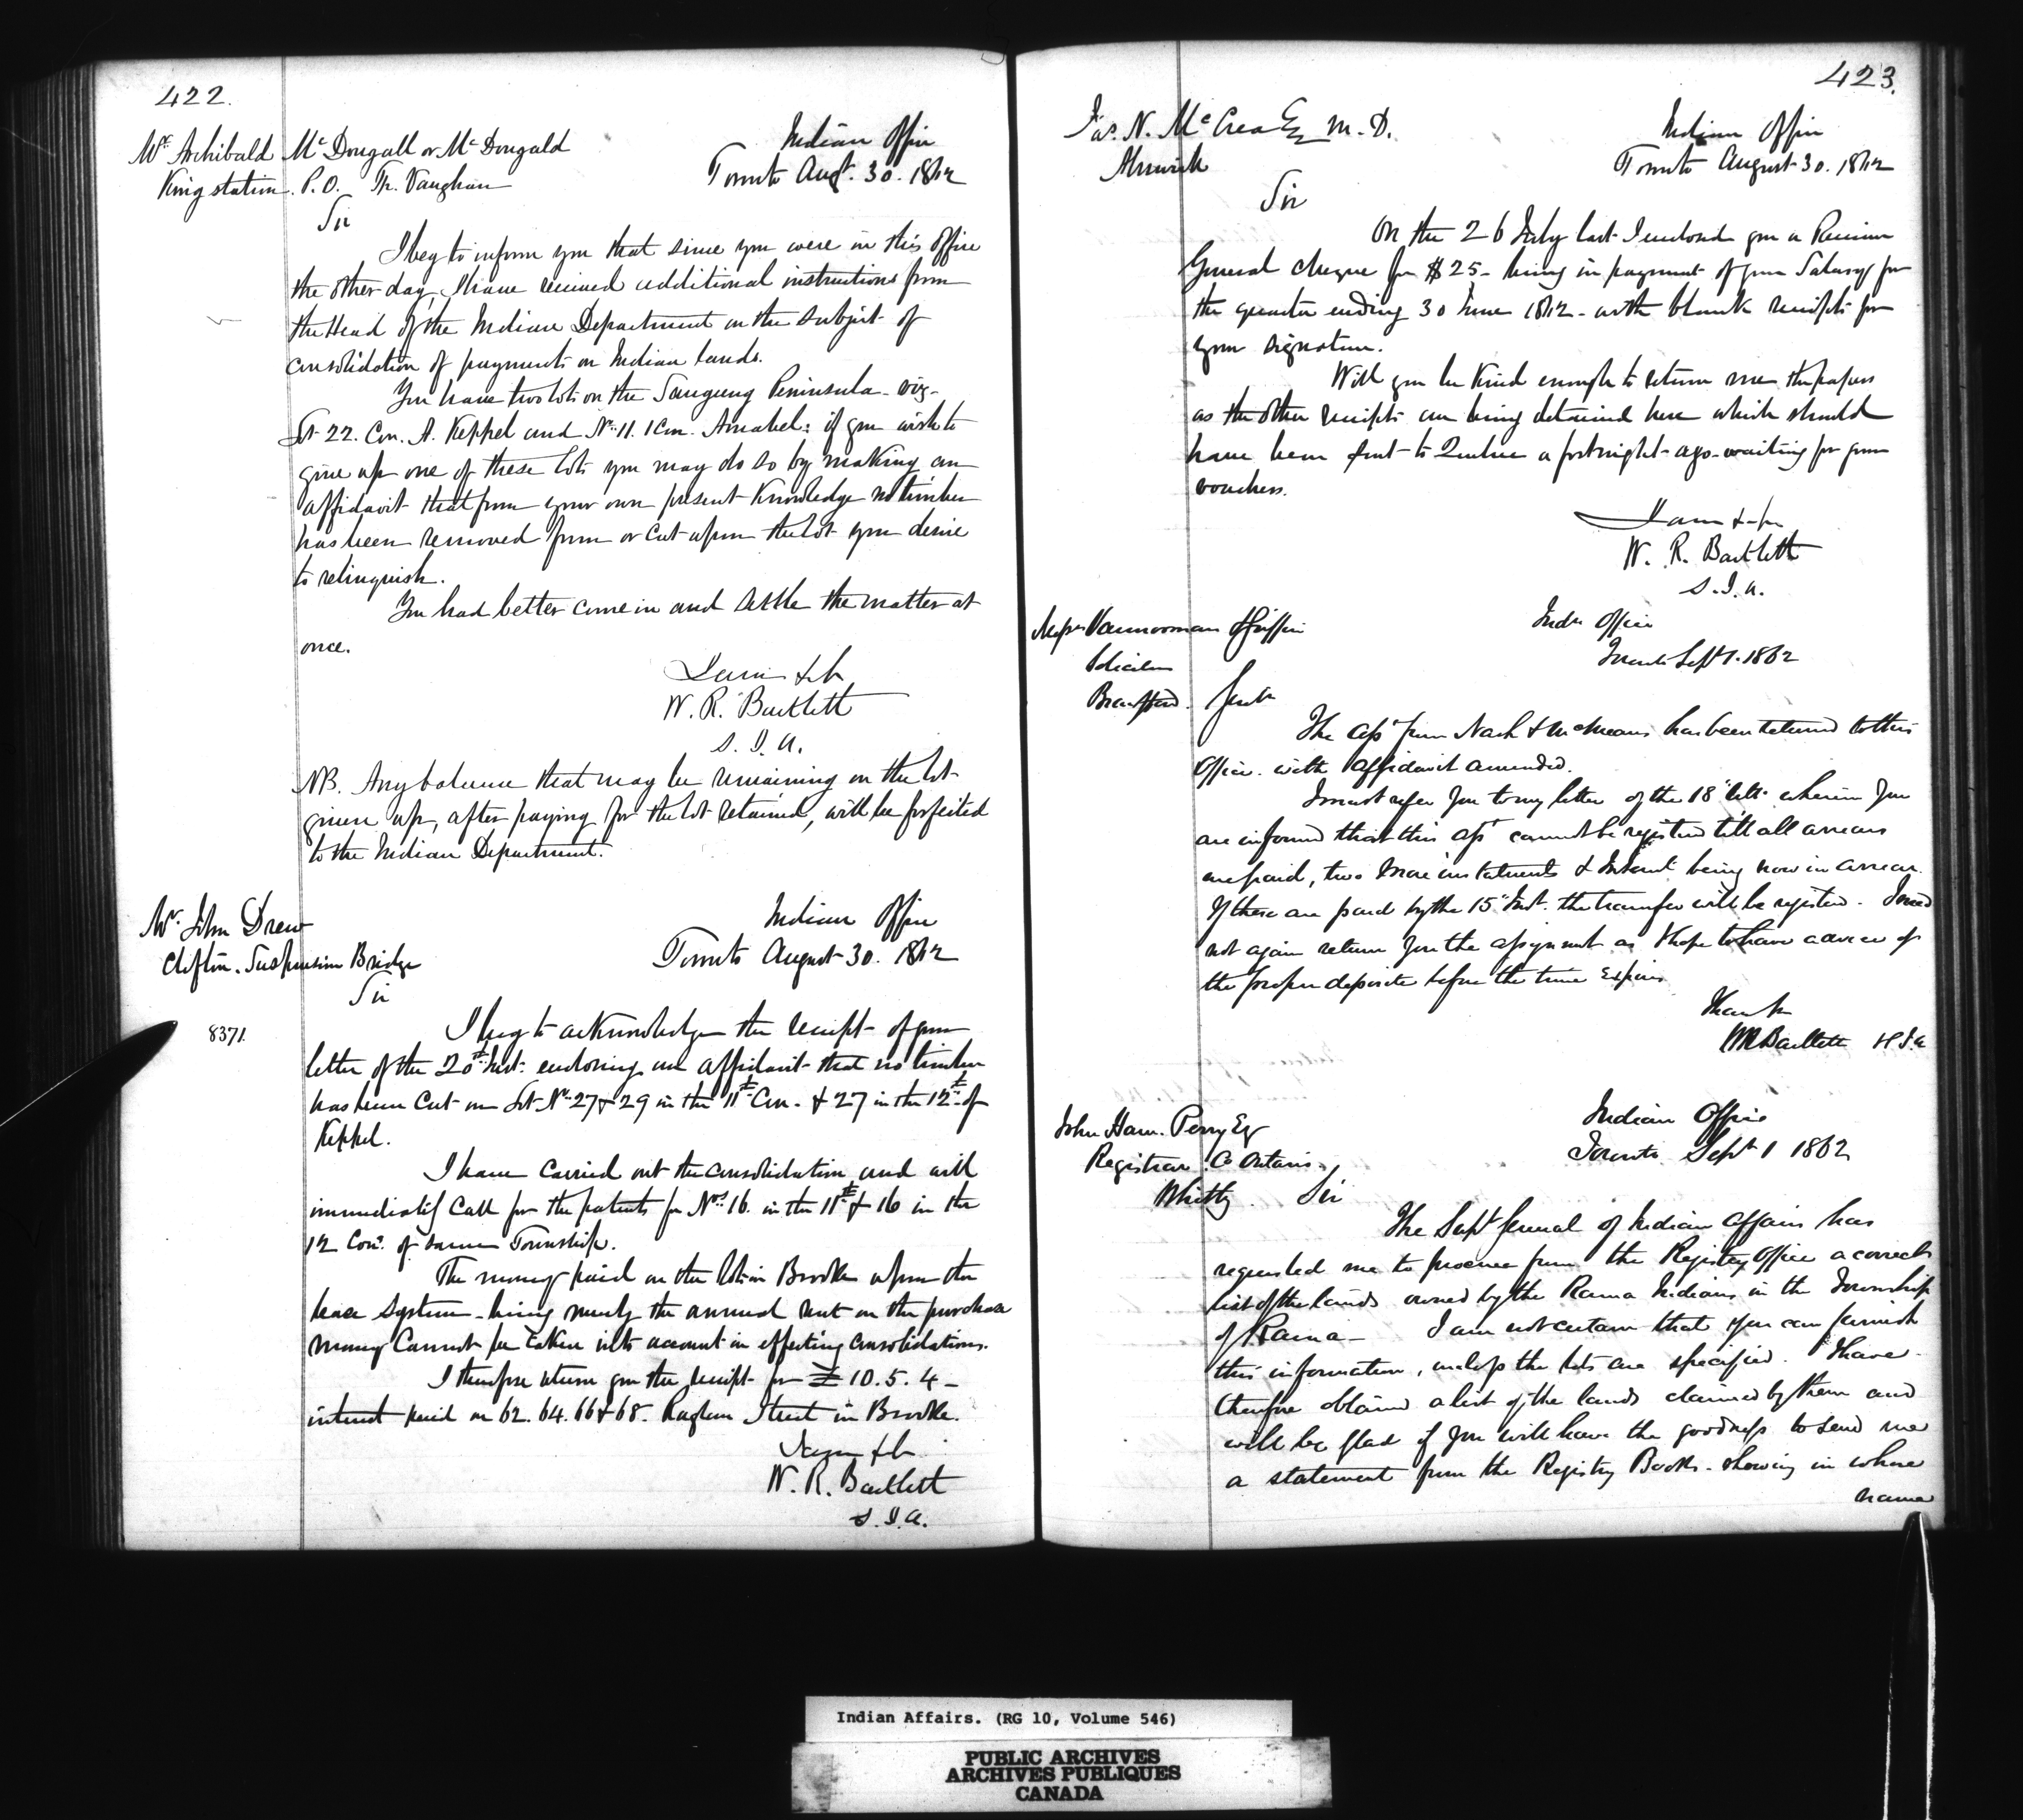 422.
Mr. Archibald McDougall or McDougald
King station. P.O. Tp. Vaughan
Indian Office
Toronto Augt. 30. 1862
Sir
I beg to inform you that since you were in this office
the other day, I have received additional instructions from
the Head of the Indian Department on the subject of
consolidation of payments on Indian lands.
You have two lots on the Saugeeng Peninsula - viz -
Lot 22. Con. A. Keppel and No. 11. 1 Con. Amabel: if you wish to
give up one of these lots you may do so by making an
affidavit that from your own present knowledge no timber
has been removed from or cut upon the lot you desire
to relinquish.
You had better come in and settle the matter at
once.
I am &c
W. R. Bartlett
S. I. A.
NB. Any balance that may be remaining on the lot
given up, after paying for the lot retained, will be forfeited
to the Indian Department.
Mr. John Drew
Clifton. Suspension Bridge
Indian Office
Toronto August 30. 1862
Sir
8371.
I beg to acknowledge the receipt of your
letter of the 20th Inst: enclosing an affidavit that no timber
has been cut on Lot No. 27 & 29 in the 11th Con. & 27 in the 12th of
Keppel.
I have carried out the consolidation and will
immediately call for the patents for Nos. 16. in the 11th & 16 in the
12 Con. of same Township.
The money paid on the lots in Brooke upon the
lease system - being merely the annual rent on the purchase
money cannot be taken into account in effecting consolidations.
I therefore return you the receipt for £ 10. 5. 4 -
interest paid on 62. 64. 66 & 68. Raglan Street in Brooke.
I am &c
W. R. Bartlett
S. I. A.
423.
Jas. N. McCrea Esq M. D.
Alnwick
Indian Office
Toronto August 30. 1862
Sir
On the 26 July last I enclosed you a Receiver
General cheque for $25 - being in payment of your Salary for
the quarter ending 30 June 1862 - with blank receipts for
your signature.
Will you be kind enough to return me the papers
as the other receipts are being detained here which should
have been sent to Quebec a fortnight ago - waiting for your
vouchers.
I am &c
W. R. Bartlett
S. I. A.
Messrs Vannorman & Griffin
Solicitors
Brantford.
Indn Office
Toronto Sept 1. 1862
Gent
The Asst from Nash & McMeans has been returned to this
Office. with affidavit amended.
I must refer you to my letter of the 18th Ult. wherein you
are informed that this asst cannot be registered till all arrears
are paid, two more instalments & Interest being now in arrear.
If these are paid by the 15th Inst. the transfer will be registered. I need
not again return you the assignment as I hope to have advice of
the proper deposite before the time expires
I have &c
WRBartlett S I A
John Ham. Perry Esq
Registrar Co Ontario
Whitby.
Indian Office
Toronto Sept 1 1862
Sir
The Supt General of Indian Affairs has
requested me to procure from the Registry Office a correct
list of the lands owned by the Rama Indians in the Township
of Rama - I am not certain that you can furnish
this information, unless the lots are specified. I have
therefore obtained a list of the lands claimed by them and
will be glad if you will have the goodness to send me
a statement from the Registry Books - showing in whose
name
Indian Affairs. (RG 10, Volume 546)
PUBLIC ARCHIVES
ARCHIVES PUBLIQUES
CANADA